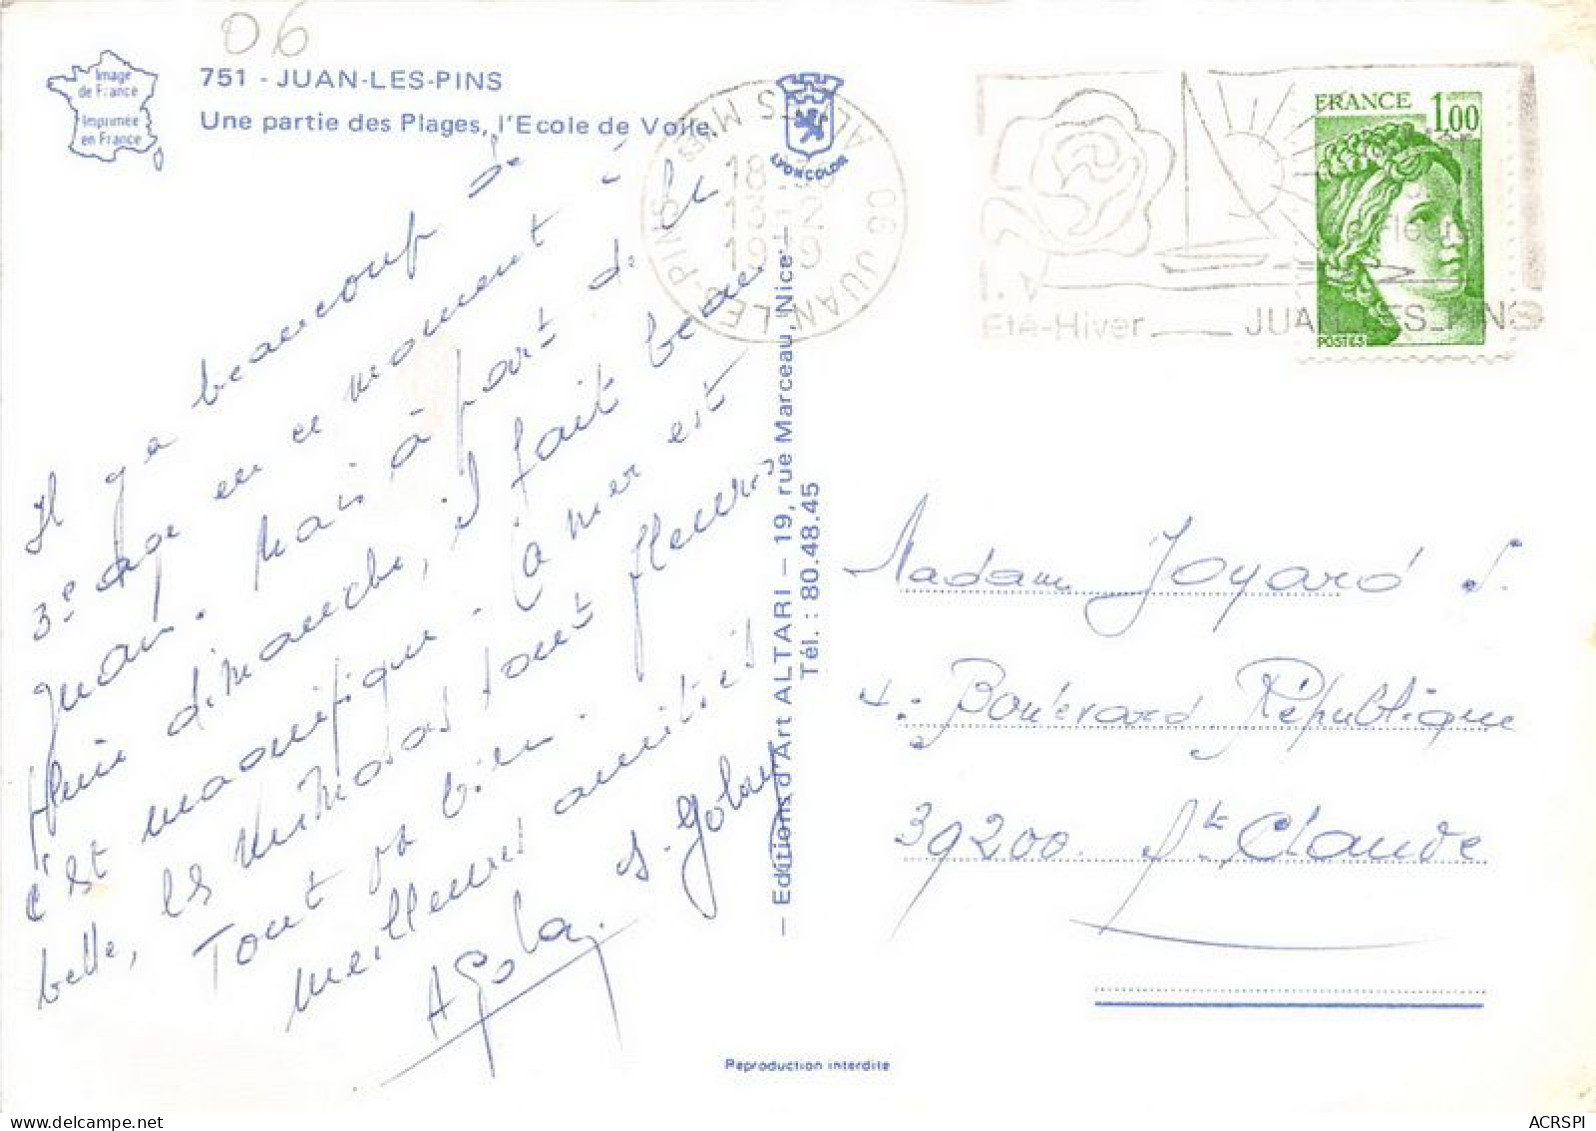 06
Image
de France
Imprimée
en France
751 - JUAN-LES-PINS
Une partie des Plages, l'Ecole de Voile.
LYONCOLOR
06 JUAN-LES-PINS
ALPES MMES
18
1979
Eté-Hiver JUAN-LES-PINS
FRANCE 1.00
POSTES
Il y a beaucoup de
3e age en ce moment à
Juan. Mais à part de la
pluie dimanche, il fait beau
c'est magnifique. La mer est
belle, les Mimosas sont fleuris
Tout va bien
meilleures amitiés
A Golay. S. Golay
— Editions d'Art ALTARI — 19, rue Marceau, Nice —
Tél. : 80.48.45
Madame Joyard S.
Boulevard République
39200. St Claude
Reproduction interdite
ACRSPI